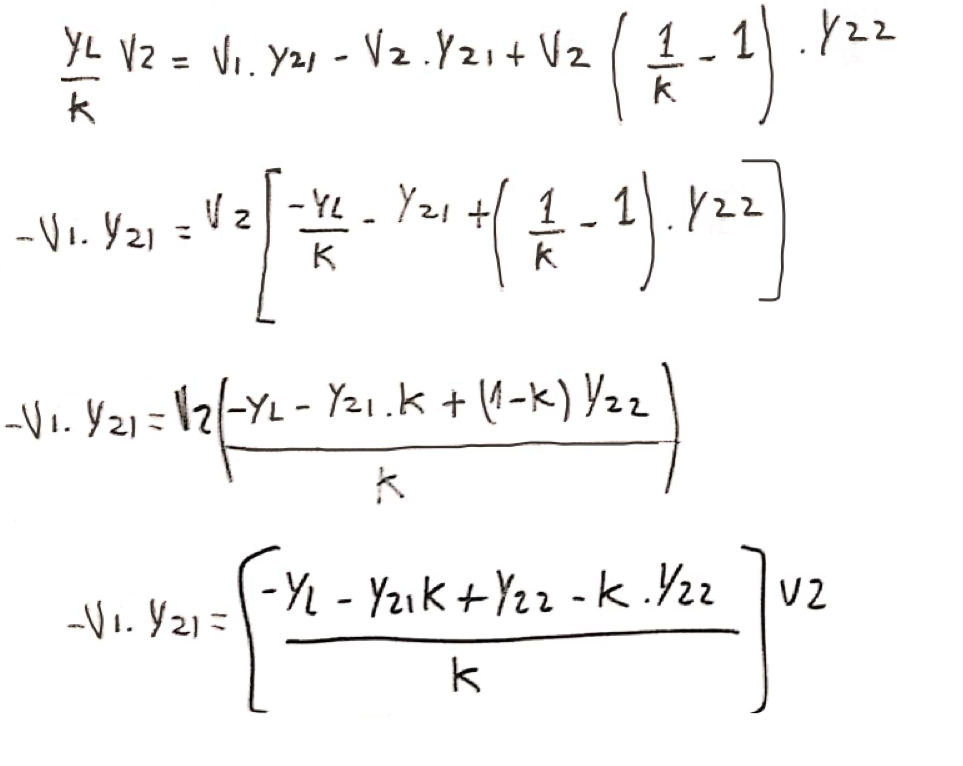 YL/k V2 = V1. Y21 - V2 .Y21 + V2 (1/k - 1) . Y22
-V1. Y21 = V2 [-YL/k - Y21 + (1/k - 1). Y22]
-V1. Y21 = V2 (-YL - Y21.k + (1-k) Y22 / k)
-V1. Y21 = [-YL - Y21k + Y22 - k .Y22 / k] V2